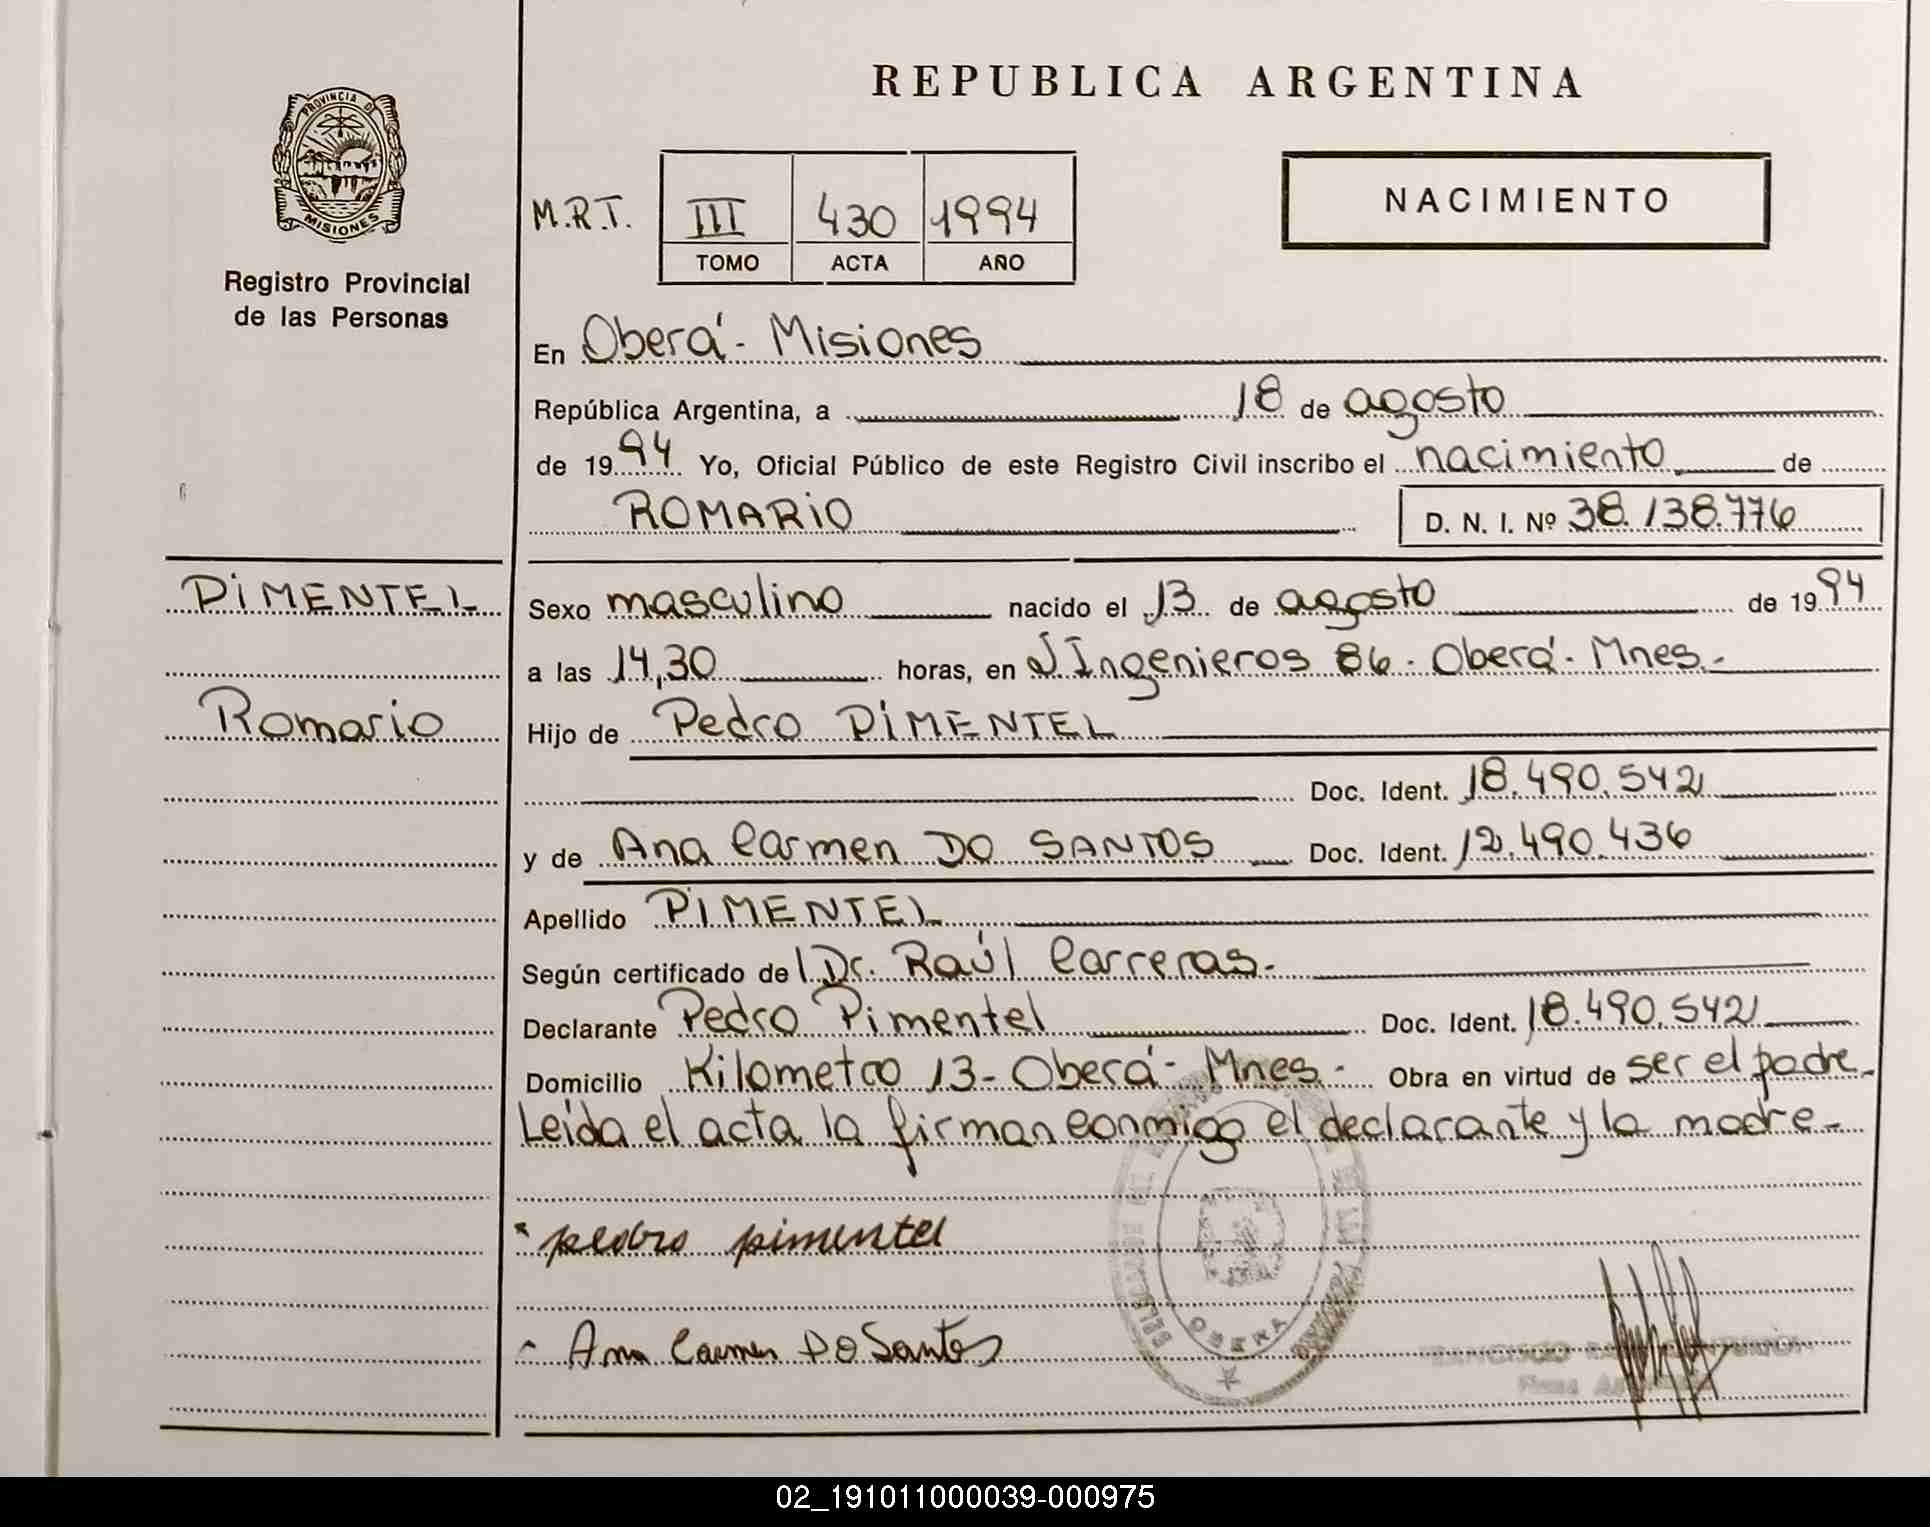 REPUBLICA ARGENTINA
PROVINCIA DE
MISIONES
Registro Provincial
de las Personas
M.R.T. III 430 1994
TOMO ACTA AÑO
NACIMIENTO
En Oberá - Misiones
República Argentina, a 18 de agosto
de 19 94 Yo, Oficial Público de este Registro Civil inscribo el nacimiento de
ROMARIO
D. N. I. Nº 38.138.776
PIMENTEL
Romario
Sexo masculino nacido el 13 de agosto de 19 94
a las 14,30 horas, en J Ingenieros 86 - Oberá - Mnes.-
Hijo de Pedro PIMENTEL
Doc. Ident. 18.490.542
y de Ana Carmen DO SANTOS Doc. Ident. 12.490.436
Apellido PIMENTEL
Según certificado de l Dr. Raúl Carreras.-
Declarante Pedro Pimentel Doc. Ident. 18.490.542
Domicilio Kilometro 13 - Oberá - Mnes - Obra en virtud de ser el padre -
Leída el acta la firman conmigo el declarante y la madre -
pedro pimentel
OBERA
Ana Carmen DO Santos
02_191011000039-000975